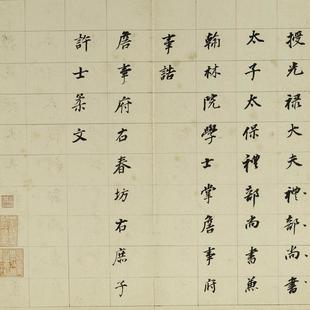 授光禄大夫禮部尚書
太子太保禮部尚書兼
翰林院學士掌詹事府
事誥
詹事府右春坊右庶子
許士柔文